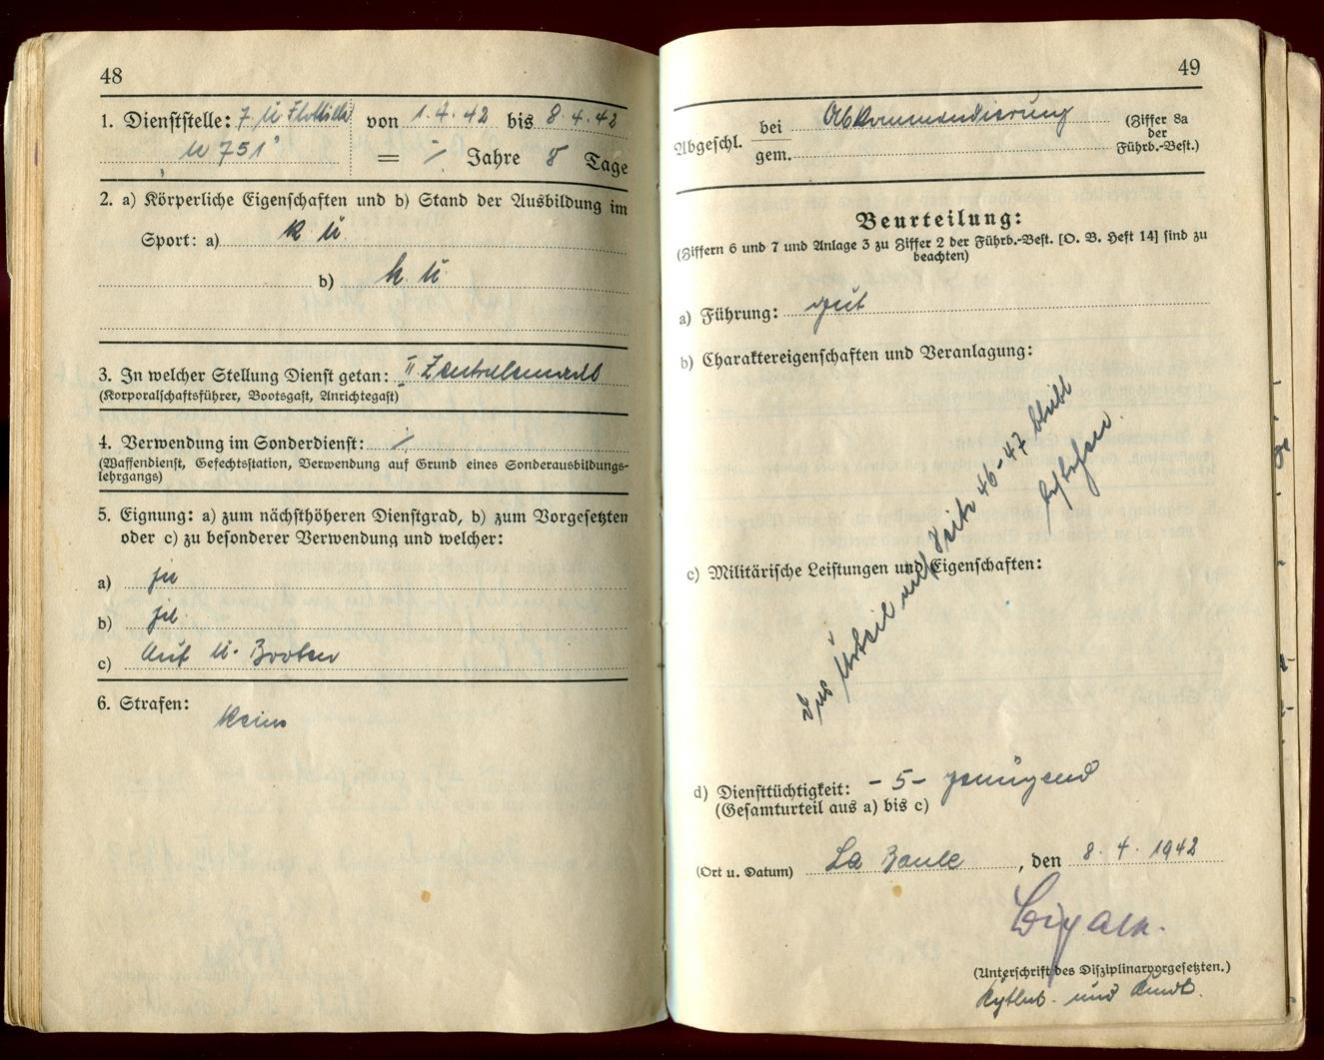 48
1. Dienststelle: 7. U Flottille von 1.4.42 bis 8.4.42
"U 751" = / Jahre 8 Tage
2. a) Körperliche Eigenschaften und b) Stand der Ausbildung im
Sport: a) k ü
b) k. ü.
3. In welcher Stellung Dienst getan: II Zentralemaat
(Korporalschaftsführer, Bootsgast, Anrichtegast)
4. Verwendung im Sonderdienst: /
(Waffendienst, Gefechtsstation, Verwendung auf Grund eines Sonderausbildungs-
lehrgangs)
5. Eignung: a) zum nächsthöheren Dienstgrad, b) zum Vorgesetzten
oder c) zu besonderer Verwendung und welcher:
a) ja
b) ja
c) Auf U. Booten
6. Strafen:
Keine
49
Abgeschl. bei Abkommandierung (Ziffer 8a
der
gem. Führb.-Best.)
Beurteilung:
(Ziffern 6 und 7 und Anlage 3 zu Ziffer 2 der Führb.-Best. [O. B. Heft 14] sind zu
beachten)
a) Führung: gut
b) Charaktereigenschaften und Veranlagung:
Das Urteil auf Seite 46-47 bleibt
bestehen.
c) Militärische Leistungen und Eigenschaften:
d) Diensttüchtigkeit: - 5 - genügend
(Gesamturteil aus a) bis c)
(Ort u. Datum) La Baule, den 8.4.1942
Bigalk.
(Unterschrift des Disziplinarvorgesetzten.)
Kptlt. und Kmdt.